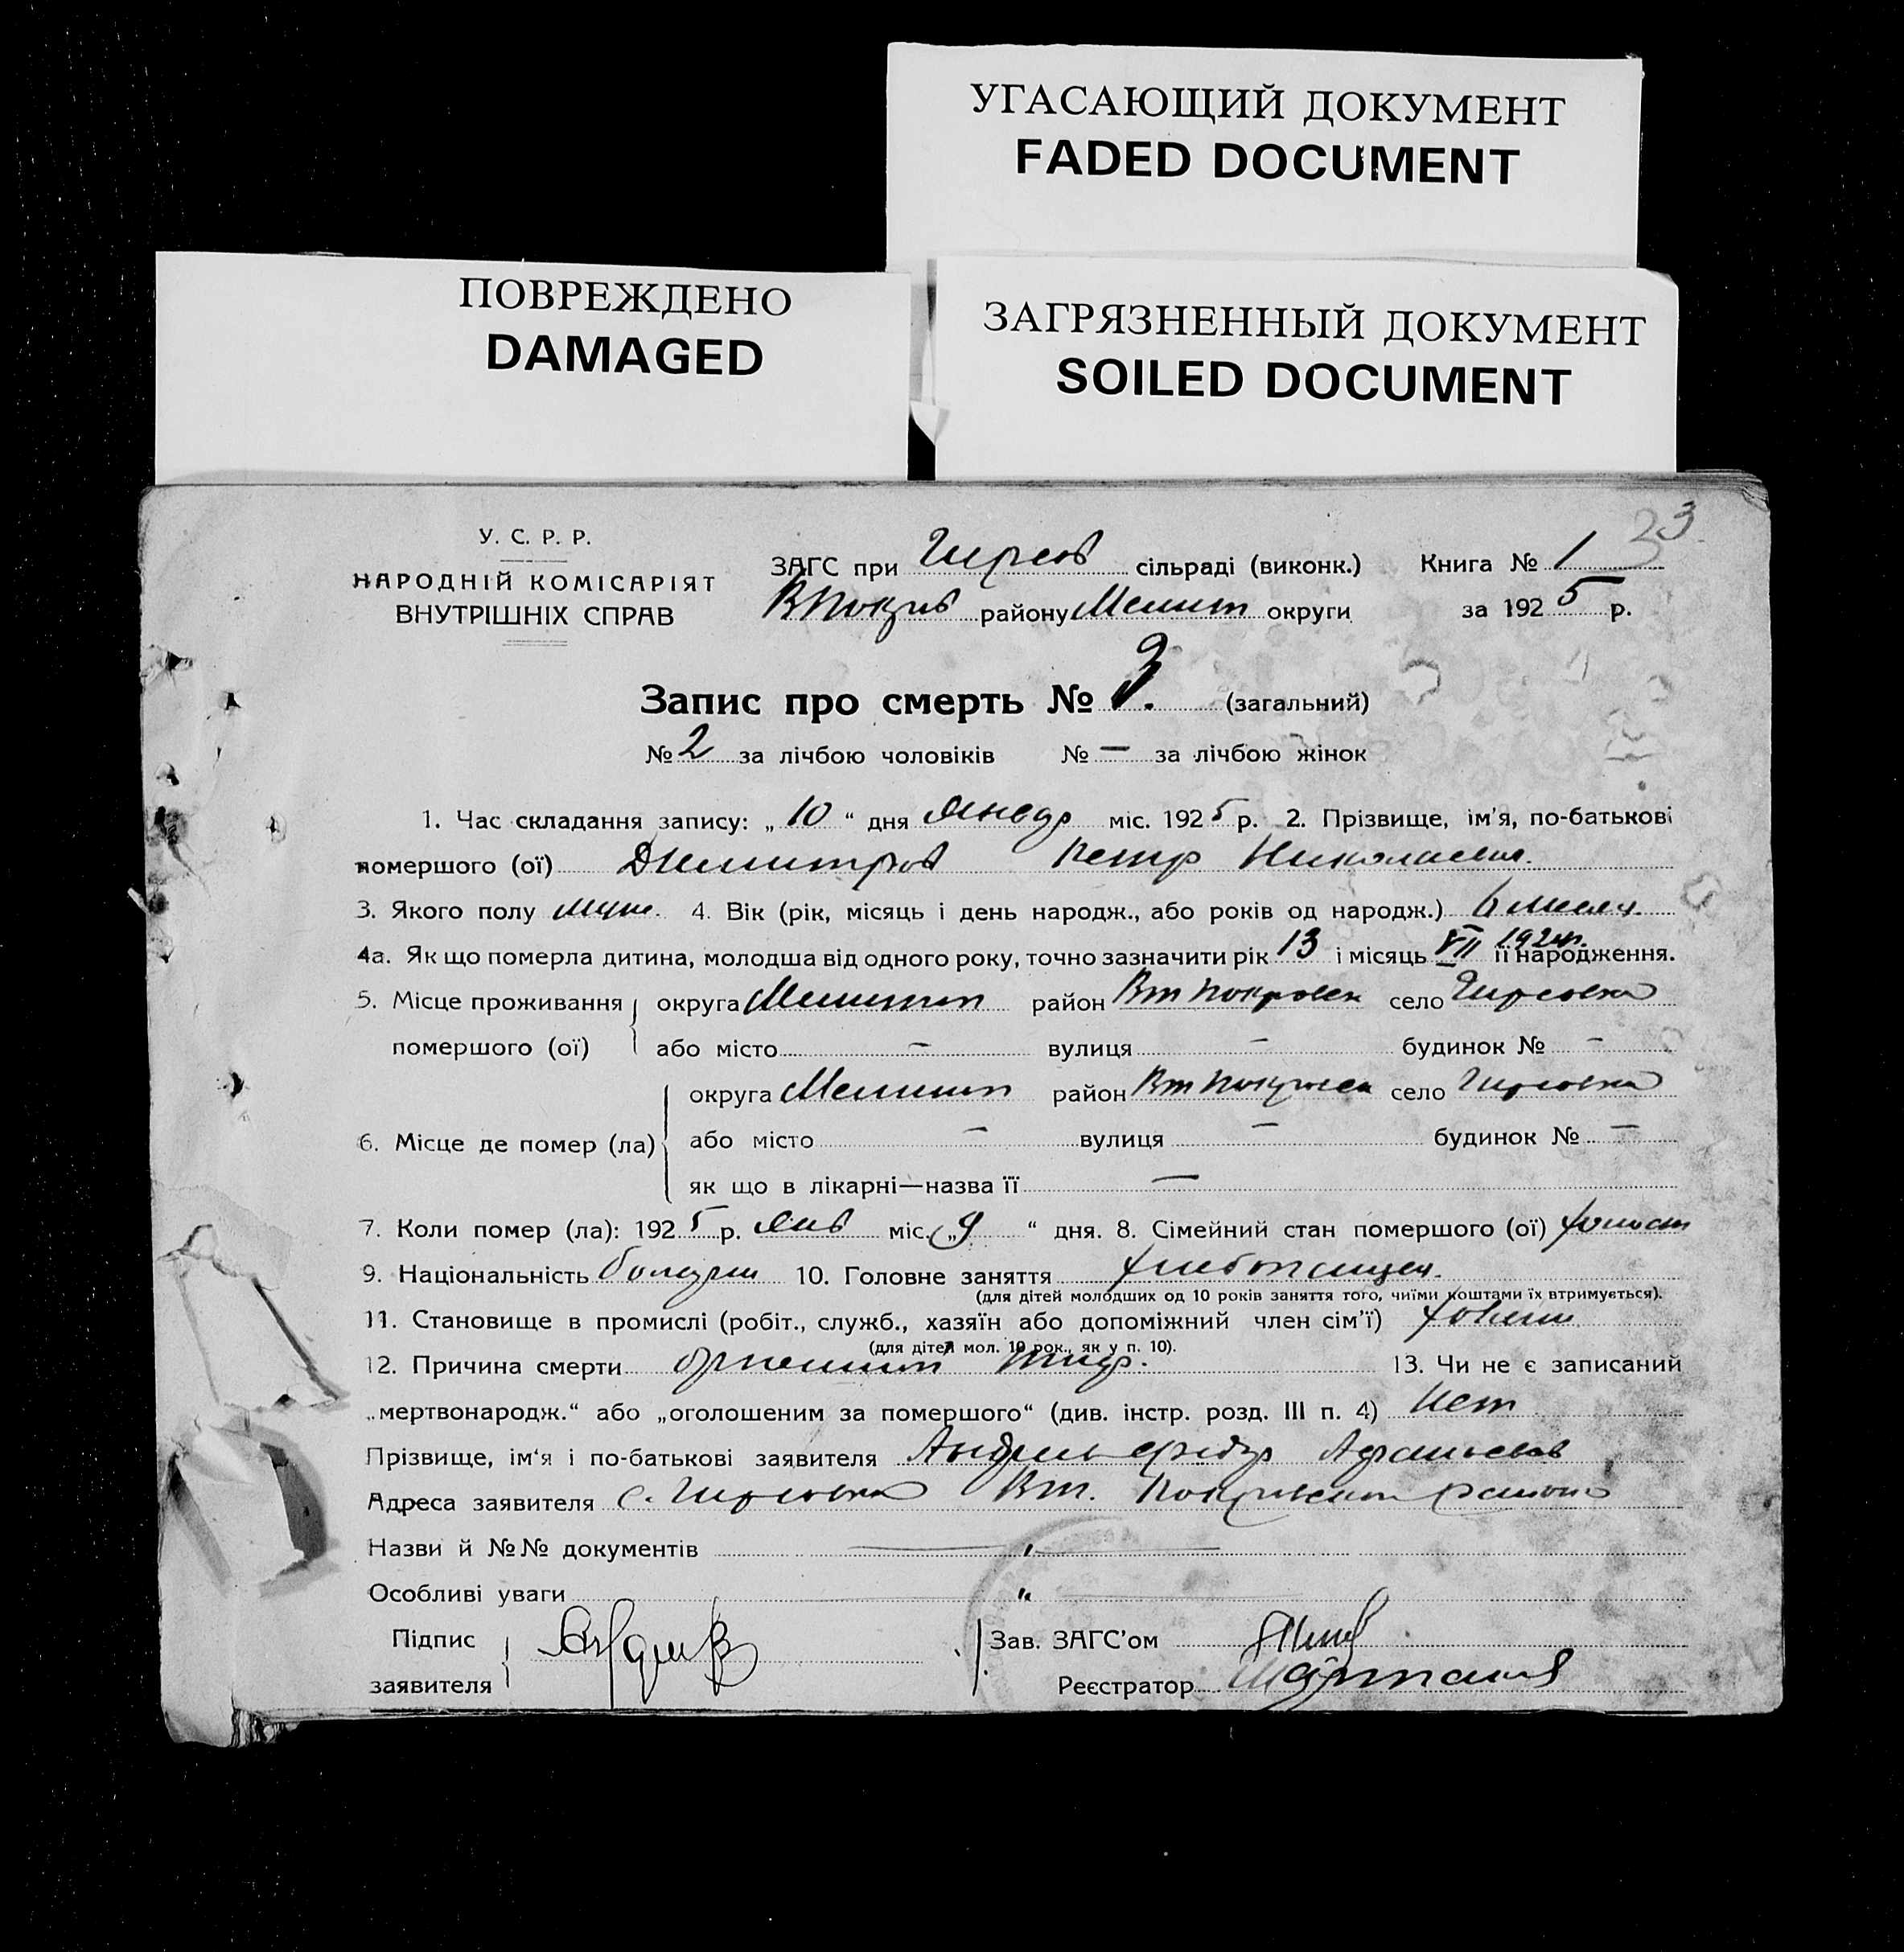 УГАСАЮЩИЙ ДОКУМЕНТ
FADED DOCUMENT
ПОВРЕЖДЕНО
DAMAGED
ЗАГРЯЗНЕННЫЙ ДОКУМЕНТ
SOILED DOCUMENT
33
У. С. Р. Р.
НАРОДНІЙ КОМІСАРІЯТ
ВНУТРІШНІХ СПРАВ
ЗАГС при Гирсов сільраді (виконк.) Книга № 1
ВПокров району Мелит округи за 1925 р.
Запис про смерть № 3. (загальний)
№ 2 за лічбою чоловіків № — за лічбою жінок
1. Час складання запису: „10“ дня Январ міс. 1925 р. 2. Прізвище, ім'я, по-батькові
помершого (ої) Димитров Петр Николаевич.
3. Якого полу муж. 4. Вік (рік, місяць і день народж., або років од народж.) 6 месяч.
4а. Як що померла дитина, молодша від одного року, точно зазначити рік 13 і місяць VII 1924г. її народження.
5. Місце проживання округа Мелитоп район Вт Покровск село Гирсовка
помершого (ої) або місто — вулиця — будинок № —
округа Мелитоп район Вт Покровск село Гирсовка
6. Місце де помер (ла) або місто — вулиця — будинок № —
як що в лікарні—назва її —
7. Коли помер (ла): 1925 р. Янв міс. „9“ дня. 8. Сімейний стан помершого (ої) холост
9. Національність болгарин 10. Головне заняття хлебопашец.
(для дітей молодших од 10 років заняття того, чиїми коштами їх втримується).
11. Становище в промислі (робіт., служб., хазяїн або допоміжний член сім'ї) хозяин
(для дітей мол. 10 рок., як у п. 10).
12. Причина смерти 13. Чи не є записаний
„мертвонародж.“ або „оголошеним за помершого“ (див. інстр. розд. III п. 4) Нет
Прізвище, ім'я і по-батькові заявителя
Адреса заявителя с. Гирсовка Вт. Покровского района
Назви й №№ документів — „ —
Особливі уваги — „ —
Підпис
заявителя
Зав. ЗАГС'ом
Реєстратор